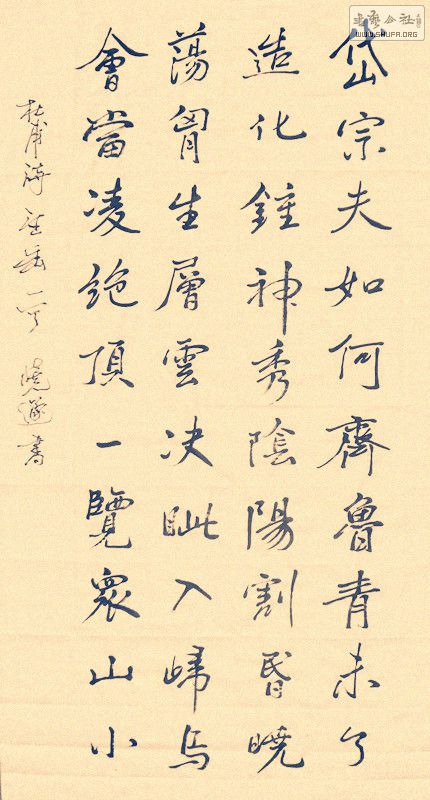 岱宗夫如何齊魯青未了
造化鍾神秀陰陽割昬曉
蕩胷生層雲决眦入歸鳥
會當凌絶頂一覽衆山小
杜甫詩望嶽一首 曉書
書藝公社
WWW.SHUFA.ORG